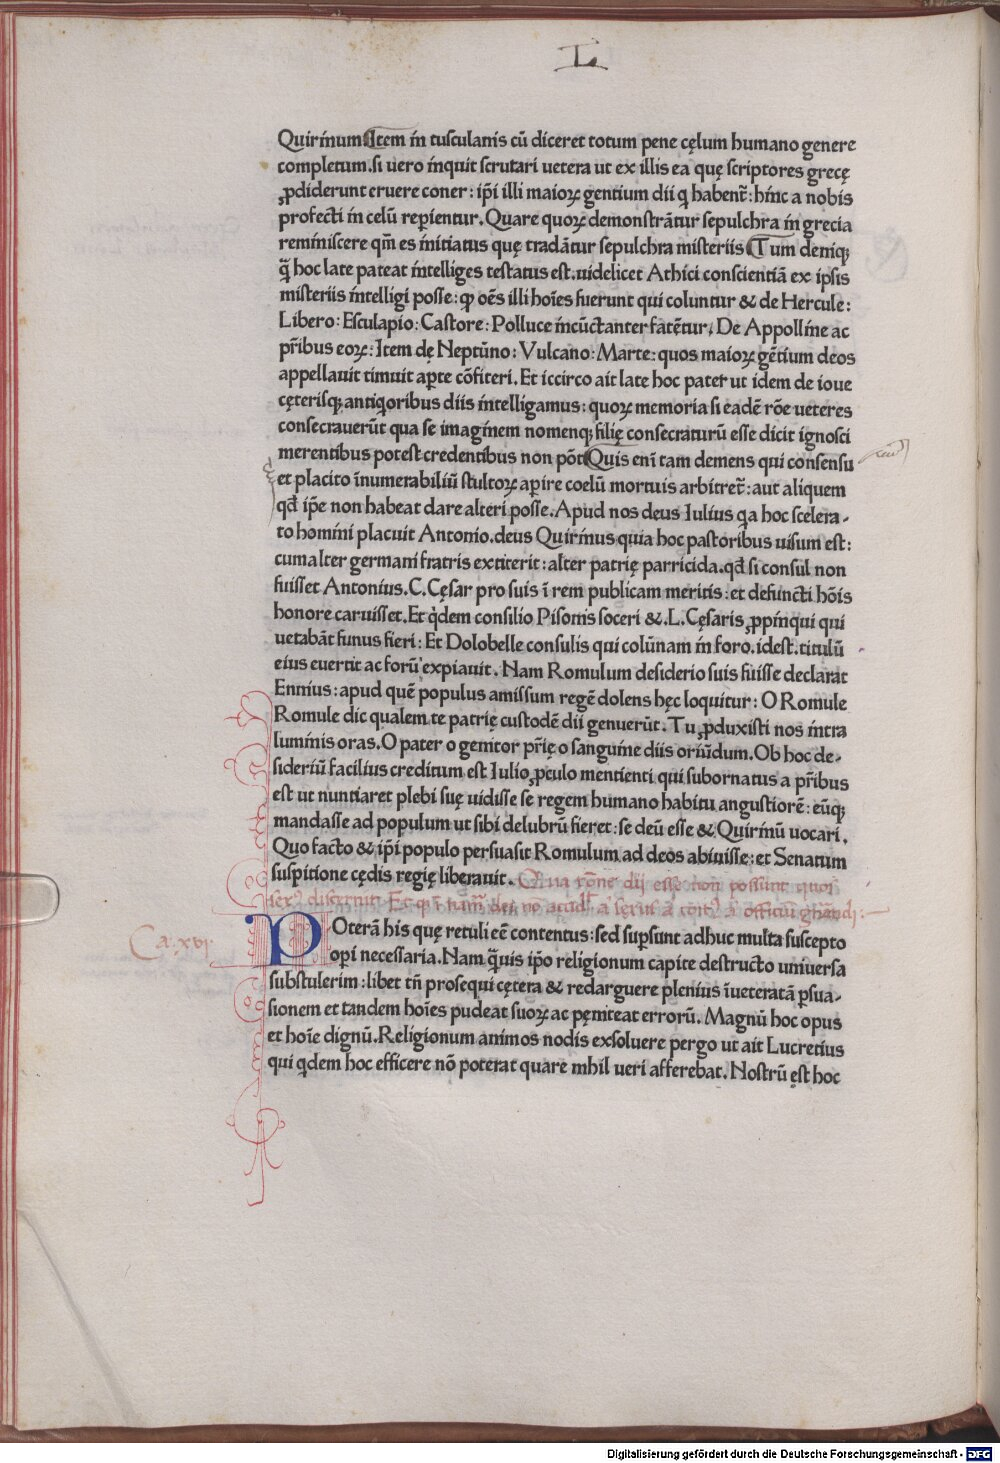 L
Quirinum Item in tusculanis cū diceret totum pene cęlum humano genere
completum.si uero inquit scrutari uetera ut ex illis ea quę scriptores grecę
ꝓdiderunt eruere coner: ip̄i illi maioꝝ gentium dii q habent̄: hinc a nobis
profecti in celū reꝑientur. Quare quoꝝ demonstrātur sepulchra in grecia
reminiscere qm̄ es initiatus quę tradātur sepulchra misteriis Tum deniqꝫ
q̄ hoc late pateat intelliges testatus est.uidelicet Athici conscientiā ex ipsis
misteriis intelligi posse: ꝙ oēs illi hoīes fuerunt qui coluntur & de Hercule:
Libero: Esculapio: Castore: Polluce incūctanter fatētur. De Appolline ac
pr̄ibus eoꝝ: Item dę Neptūno: Vulcano: Marte: quos maioꝝ gētium deos
appellauit timuit aꝑte cōfiteri. Et iccirco ait late hoc patet ut idem de ioue
cęterisqꝫ antiqoribus diis intelligamus: quoꝝ memoria si eadē rōe ueteres
consecrauerūt qua se imaginem nomenqꝫ filię consecraturū esse dicit ignosci
merentibus potest credentibus non pōt Quis enī tam demens qui consensu
et placito īnumerabiliū stultoꝝ aꝑire coelū mortuis arbitret̄: aut aliquem
qd̄ ip̄e non habeat dare alteri posse. Apud nos deus Iulius qa hoc scelera-
to homini placuit Antonio.deus Quirinus quia hoc pastoribus uisum est:
cum alter germani fratris extiterit: alter patrię parricida.qd̄ si consul non
fuisset Antonius.C.Cęsar pro suis ī rem publicam meritis: et defuncti hōis
honore caruisset. Et qdem consilio Pisonis soceri &.L.Cęsaris ꝓpinqui qui
uetabāt funus fieri: Et Dolobelle consulis qui colūnam in foro.idest.titulū
eius euertit ac forū expiauit. Nam Romulum desiderio suis fuisse declarat
Ennius: apud quē populus amissum regē dolens hęc loquitur: O Romule
Romule dic qualem te patrię custodē dii genuerūt. Tu ꝓduxisti nos intra
luminis oras. O pater o genitor pr̄ię o sanguine diis oriūdum. Ob hoc de-
sideriū facilius creditum est Iulio ꝓculo mentienti qui subornatus a pr̄ibus
est ut nuntiaret plebi suę uidisse se regem humano habitu angustiorē: eūqꝫ
mandasse ad populum ut sibi delubrū fieret: se deū esse & Quirinū uocari.
Quo facto & ip̄i populo persuasit Romulum ad deos abiuisse: et Senatum
suspitione cędis regię liberauit. Qua rōne dij esse non possunt quos
Ca. xvi
Poterā his quę retuli eē contentus: sed suꝑsunt adhuc multa suscepto
oꝑi necessaria. Nam q̄uis ip̄o religionum capite destructo uniuersa
substulerim: libet tn̄ prosequi cętera & redarguere plenius īueteratā ꝑsua-
sionem et tandem hoīes pudeat suoꝝ ac pęniteat errorū. Magnū hoc opus
et hoīe dignū. Religionum animos nodis exsoluere pergo ut ait Lucretius
qui qdem hoc efficere nō poterat quare nihil ueri afferebat. Nostrū ęst hoc
Digitalisierung gefördert durch die Deutsche Forschungsgemeinschaft - DFG